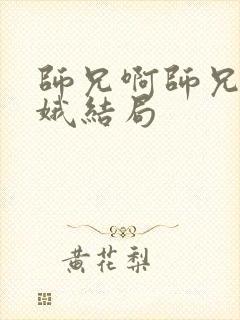 師兄啊師兄
娥結局
黄花梨